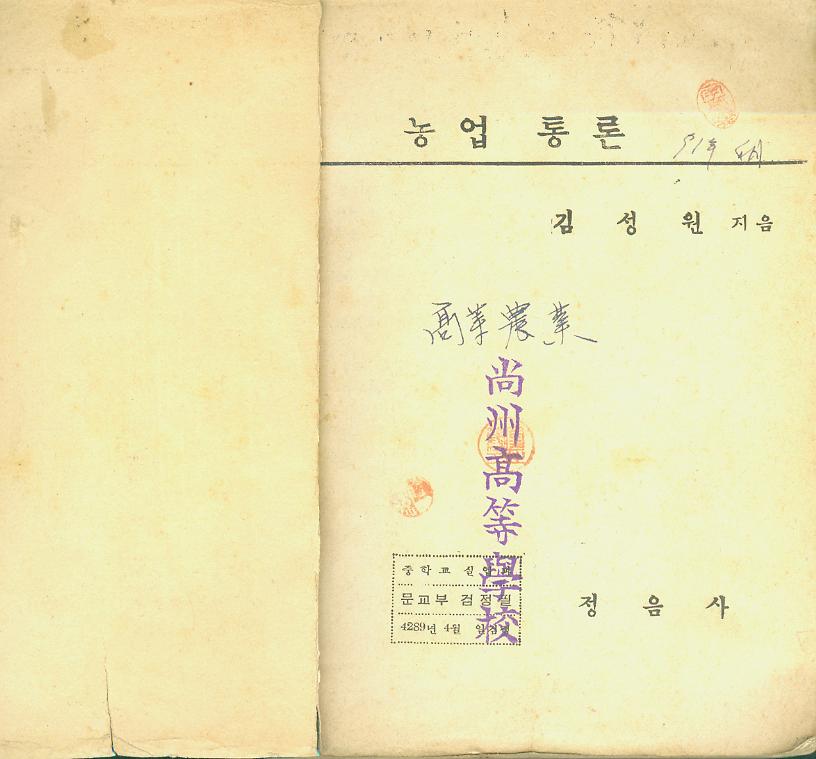 농업 통론
김 성 원 지음
商業農業
尚州高等學校
중학교 실업과
문교부 검정필
4289년 4월 일검정
정 음 사